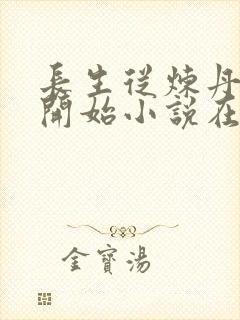 長生從煉丹
開始小說在
金寶湯